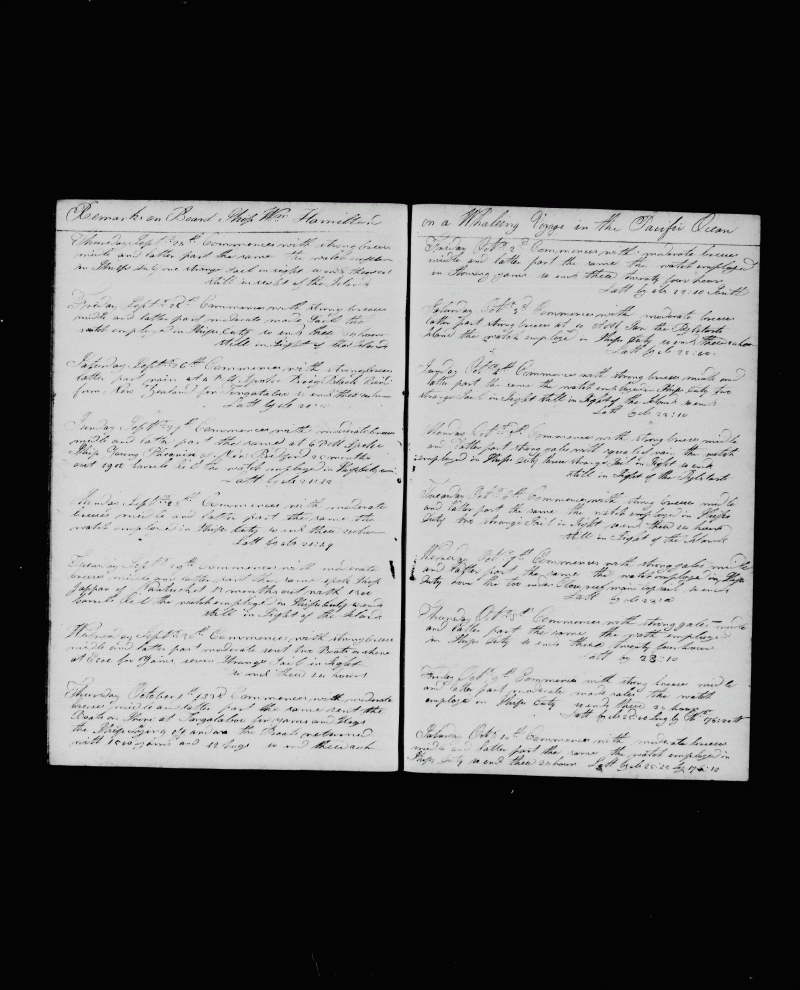 Remarks on Board Ship Wm Hamilton
Thursday Sept 24th Commences with strong breeses
midle and latter part the same the watch employed
in Ships duty one strange Sail in sight so ends these 24
still in sight of the Island
Friday Sept 25th Commences with strong breeses
midle and latter part moderate made Sail the
watch employed in Ships Duty so ends these 24 hours
still in Sight of the Island
Saturday Sept 26th Commences with strong breeses
latter part rain at 4 P M Spoke Brig Black
from New Zealand for Tongataboo so ends these 24 hours
Latt by obs
Sunday Sept 27th Commences with moderate breeses
midle and latter part the same at 6 P M Spoke
Ship Young Phoenix of New Bedford 25 months
out 1900 barrels Oil the watch employed in Ships Duty
Latt by obs 21:12
Monday Sept 28th Commences with moderate
breeses midle and latter part the same the
watch employed in Ships duty so ends these 24 hours
Latt by obs 21:29
Tuesday Sept 29th Commences with moderate
breeses midle and latter part the same spoke Ship
of Nantucket 12 months out with
barrels Oil the watch employed in Ships duty so ends
still in Sight of the Island
Wednesday Sept 30th Commences with strong breeses
midle and latter part moderate sent two Boats ashore
at Eooe for Yams seven Strange Sail in Sight
so ends these 24 hours
Thursday October 1st Commences with moderate
breeses midle and latter part the same sent the
Boats on Shore at Tongataboo for yams and Hogs
the Ship laying off and on the Boats returned
with yams and 12 hogs so ends these 24 h
on a Whaleing Voyage in the Pacific Ocean
Friday Oct 2d Commences with moderate breeses
midle and latter part the same the watch employed
in Stowing yams so ends these twenty four hours
Latt by obs 22:10 South
Saturday Oct 3d Commences with moderate breeses
latter part strong breeses at 10 A M Saw the Pylstarts
Island the watch employed in Ships Duty so ends these 24 hours
Latt by obs 22:00
Sunday Oct 4th Commences with strong breeses midle and
latter part the same the watch employed in Ships Duty two
strange Sail in Sight still in Sight of the Island so ends
Latt by obs 22:10
Monday Oct 5th Commences with strong breeses midle
and latter part strong gales with squalls of rain the watch
employed in Ships Duty three strange Sail in Sight so ends
still in Sight of the Pylstarts
Tuesday Oct 6th Commences with strong breeses midle
and latter part the same the watch employed in Ships
Duty two strange Sail in Sight so ends these 24 hours
still in Sight of the Island
Wednesday Oct 7th Commences with strong gales midle
and latter part the same the watch employed in Ships
Duty hove the too under close reef main topsail so ends
Latt by obs
Thursday Oct 8th Commences with strong gales midle
and latter part the same the watch employed
in Ships Duty so ends these twenty four hours
Latt by 23:10
Friday Oct 9th Commences with strong breeses midle
and latter part moderate made sail the watch
employed in Ships Duty so ends these 24 hours
Latt by obs Long by
Saturday Oct 10th Commences with moderate breeses
midle and latter part the same the watch employed in
Ships Duty so ends these 24 hours Latt by obs 25:22 Lg 176:10